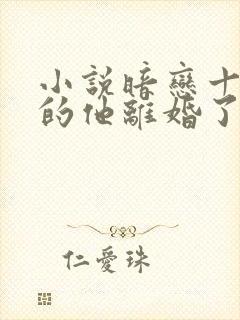 小說暗戀十
的他離婚了
仁愛珠